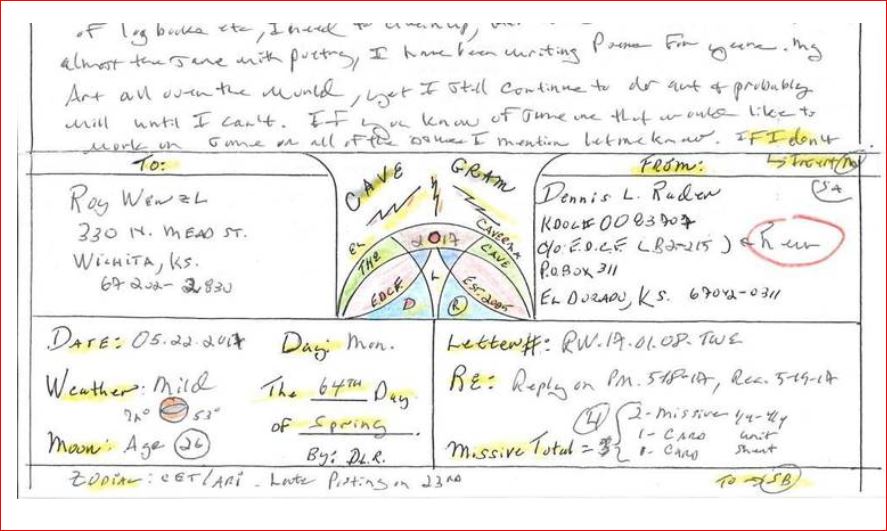 of log books etc, I need to
almost the same with poetry, I have been writing Poems For years. My
Art all over the world, yet I still continue to do art & probably
will until I can't. If you know of someone that would like to
work on some or all of the issues I mention let me know. IF I don't
To:
Roy Wenzl
330 N. MEAD ST.
WICHITA, KS.
67202-2830
CAVE GRAM
2017
EL
THE
CAVERN
CAVE
EDCF
EST. 2005
D
L
R
FROM:
Dennis L. Rader
KDOC# 0083707
c/o: E.D.C.F. (B2-215)
P.O. BOX 311
EL DORADO, KS. 67042-0311
DATE: 05.22.2017 Day: Mon.
Weather: Mild The 64TH Day
53° of Spring
Moon: Age 26 By: DLR.
Letter#: RW.17.01.08.
RE: Reply on PM. 5-18-17, Rec. 5-19-17
4 2-Missive
1-CARD unit
Missive Total = 0-CARD
ZODIAC: CET/ARI - Late Posting on 23RD
TO → SB